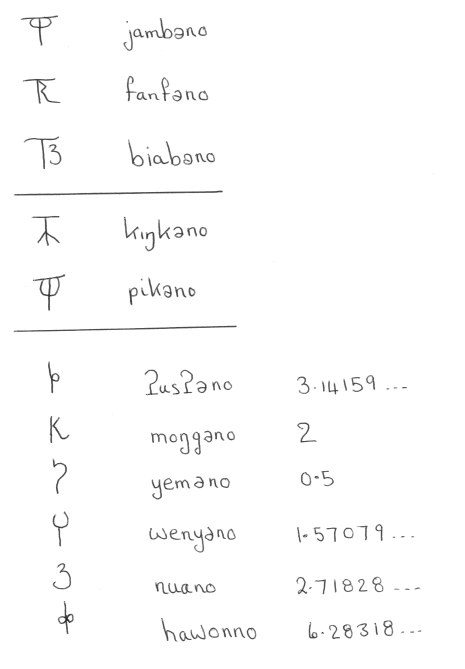 jambəno
fanfəno
biabəno
kıŋkəno
pikəno
ʔusʔəno 3.14159 ...
K moŋgəno 2
yeməno 0.5
wenyəno 1.57079...
3 nuano 2.71828 ...
hawonno 6.28318...